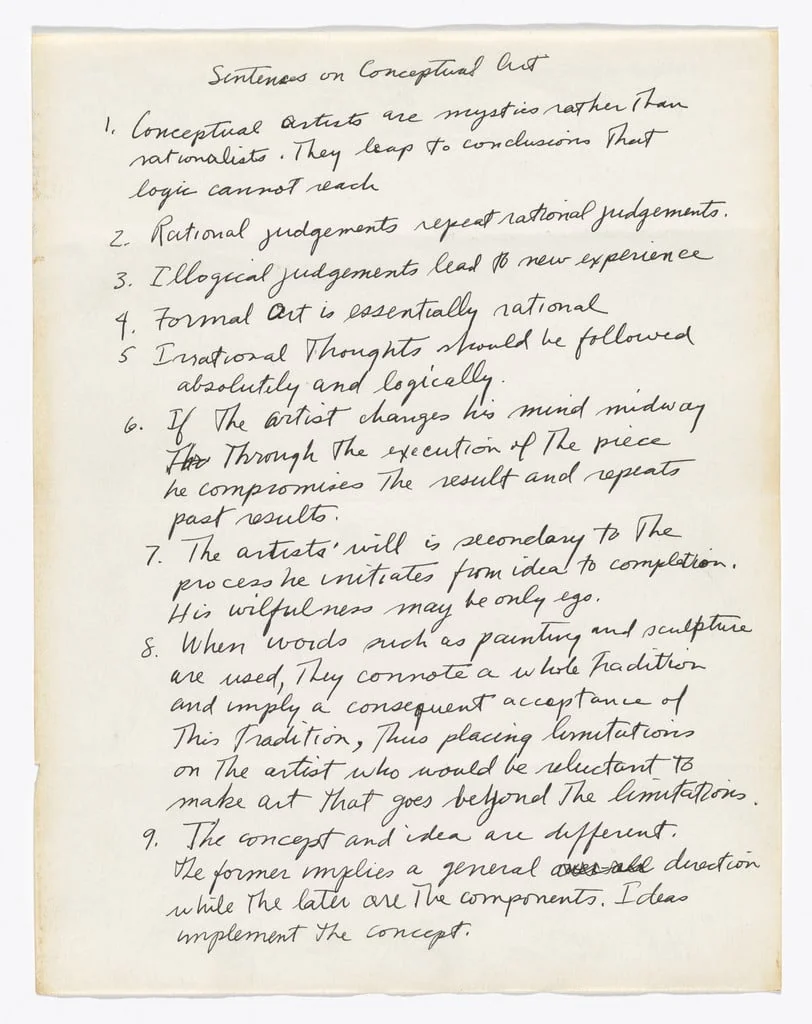 Sentences on Conceptual Art
1. Conceptual Artists are mystics rather than
rationalists. They leap to conclusions that
logic cannot reach
2. Rational judgements repeat rational judgements.
3. Illogical judgements lead to new experience
4. Formal Art is essentially rational
5 Irrational Thoughts should be followed
absolutely and logically.
6. If the artist changes his mind midway
through the execution of the piece
he compromises the result and repeats
past results.
7. The artists' will is secondary to the
process he initiates from idea to completion.
His wilfulness may be only ego.
8. When words such as painting and sculpture
are used, they connote a whole tradition
and imply a consequent acceptance of
this tradition, thus placing limitations
on the artist who would be reluctant to
make art that goes beyond the limitations.
9. The concept and idea are different.
The former implies a general direction
while the later are the components. Ideas
implement the concept.